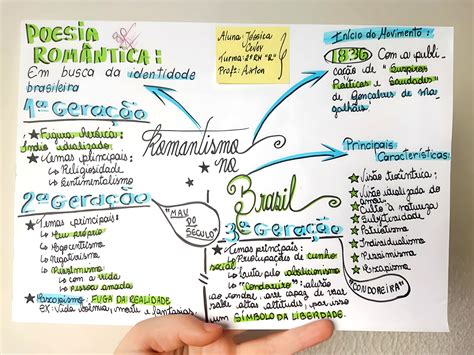 POESIA
ROMÂNTICA:
Em busca da identidade
brasileira
Aluna Jéssica
Turma: 2º RH "R"
Prof: Airton
Início do Movimento:
1836 Com a publi-
cação de "Suspiros
Poéticos e Saudades"
de Gonçalves de Ma-
galhães
Romantismo
no
Brasil
1ª Geração
★ Figura heróica:
Índio idealizado
★ Temas principais:
↳ Religiosidade
↳ Sentimentalismo
2ª Geração
"MAL
DO
SÉCULO"
★ Temas principais:
↳ Eu próprio
↳ Egocentrismo
↳ Negativismo
↳ Pessimismo
↳ com a vida
↳ pessoa amada
★ Escapismo: FUGA DA REALIDADE
EX: Vida boêmia, morte e fantasias
3ª Geração
"CONDOREIRA"
★ Temas principais:
↳ Preocupações de cunho
social
↳ Luta pelo abolicionismo
↳ "Condoreiro": alusão
ao condor, ave capaz de voar
altas altitudes, por isso
um SÍMBOLO DA LIBERDADE.
Principais
Características:
★ Visão teocêntrica;
★ Visão idealizada do
amor
★ Culto à natureza
★ Subjetividade
★ Patriotismo
★ Individualismo
★ Pessimismo
★ Escapismo